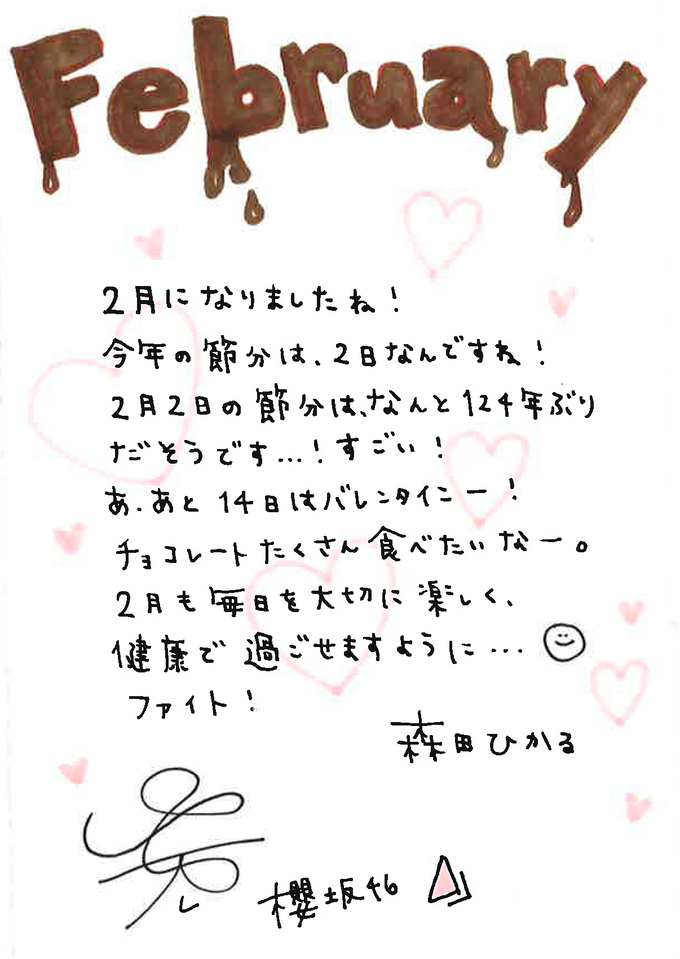 February
2月になりましたね！
今年の節分は、2日なんですね！
2月2日の節分は、なんと124年ぶり
だそうです…！すごい！
あ、あと14日はバレンタインー！
チョコレートたくさん食べたいなー。
2月も毎日を大切に楽しく、
健康で過ごせますように…
ファイト！
森田ひかる
櫻坂46